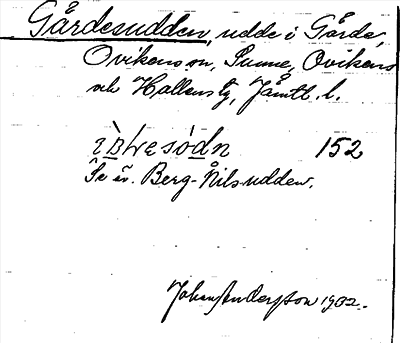 Gårdesudden, udde i Gårde,
Ovikens sn, Sunne, Ovikens
och Hallens tg, Jämtl. l.
152
Se äv. Berg-Nilsudden.
Johan Andersson 1902.